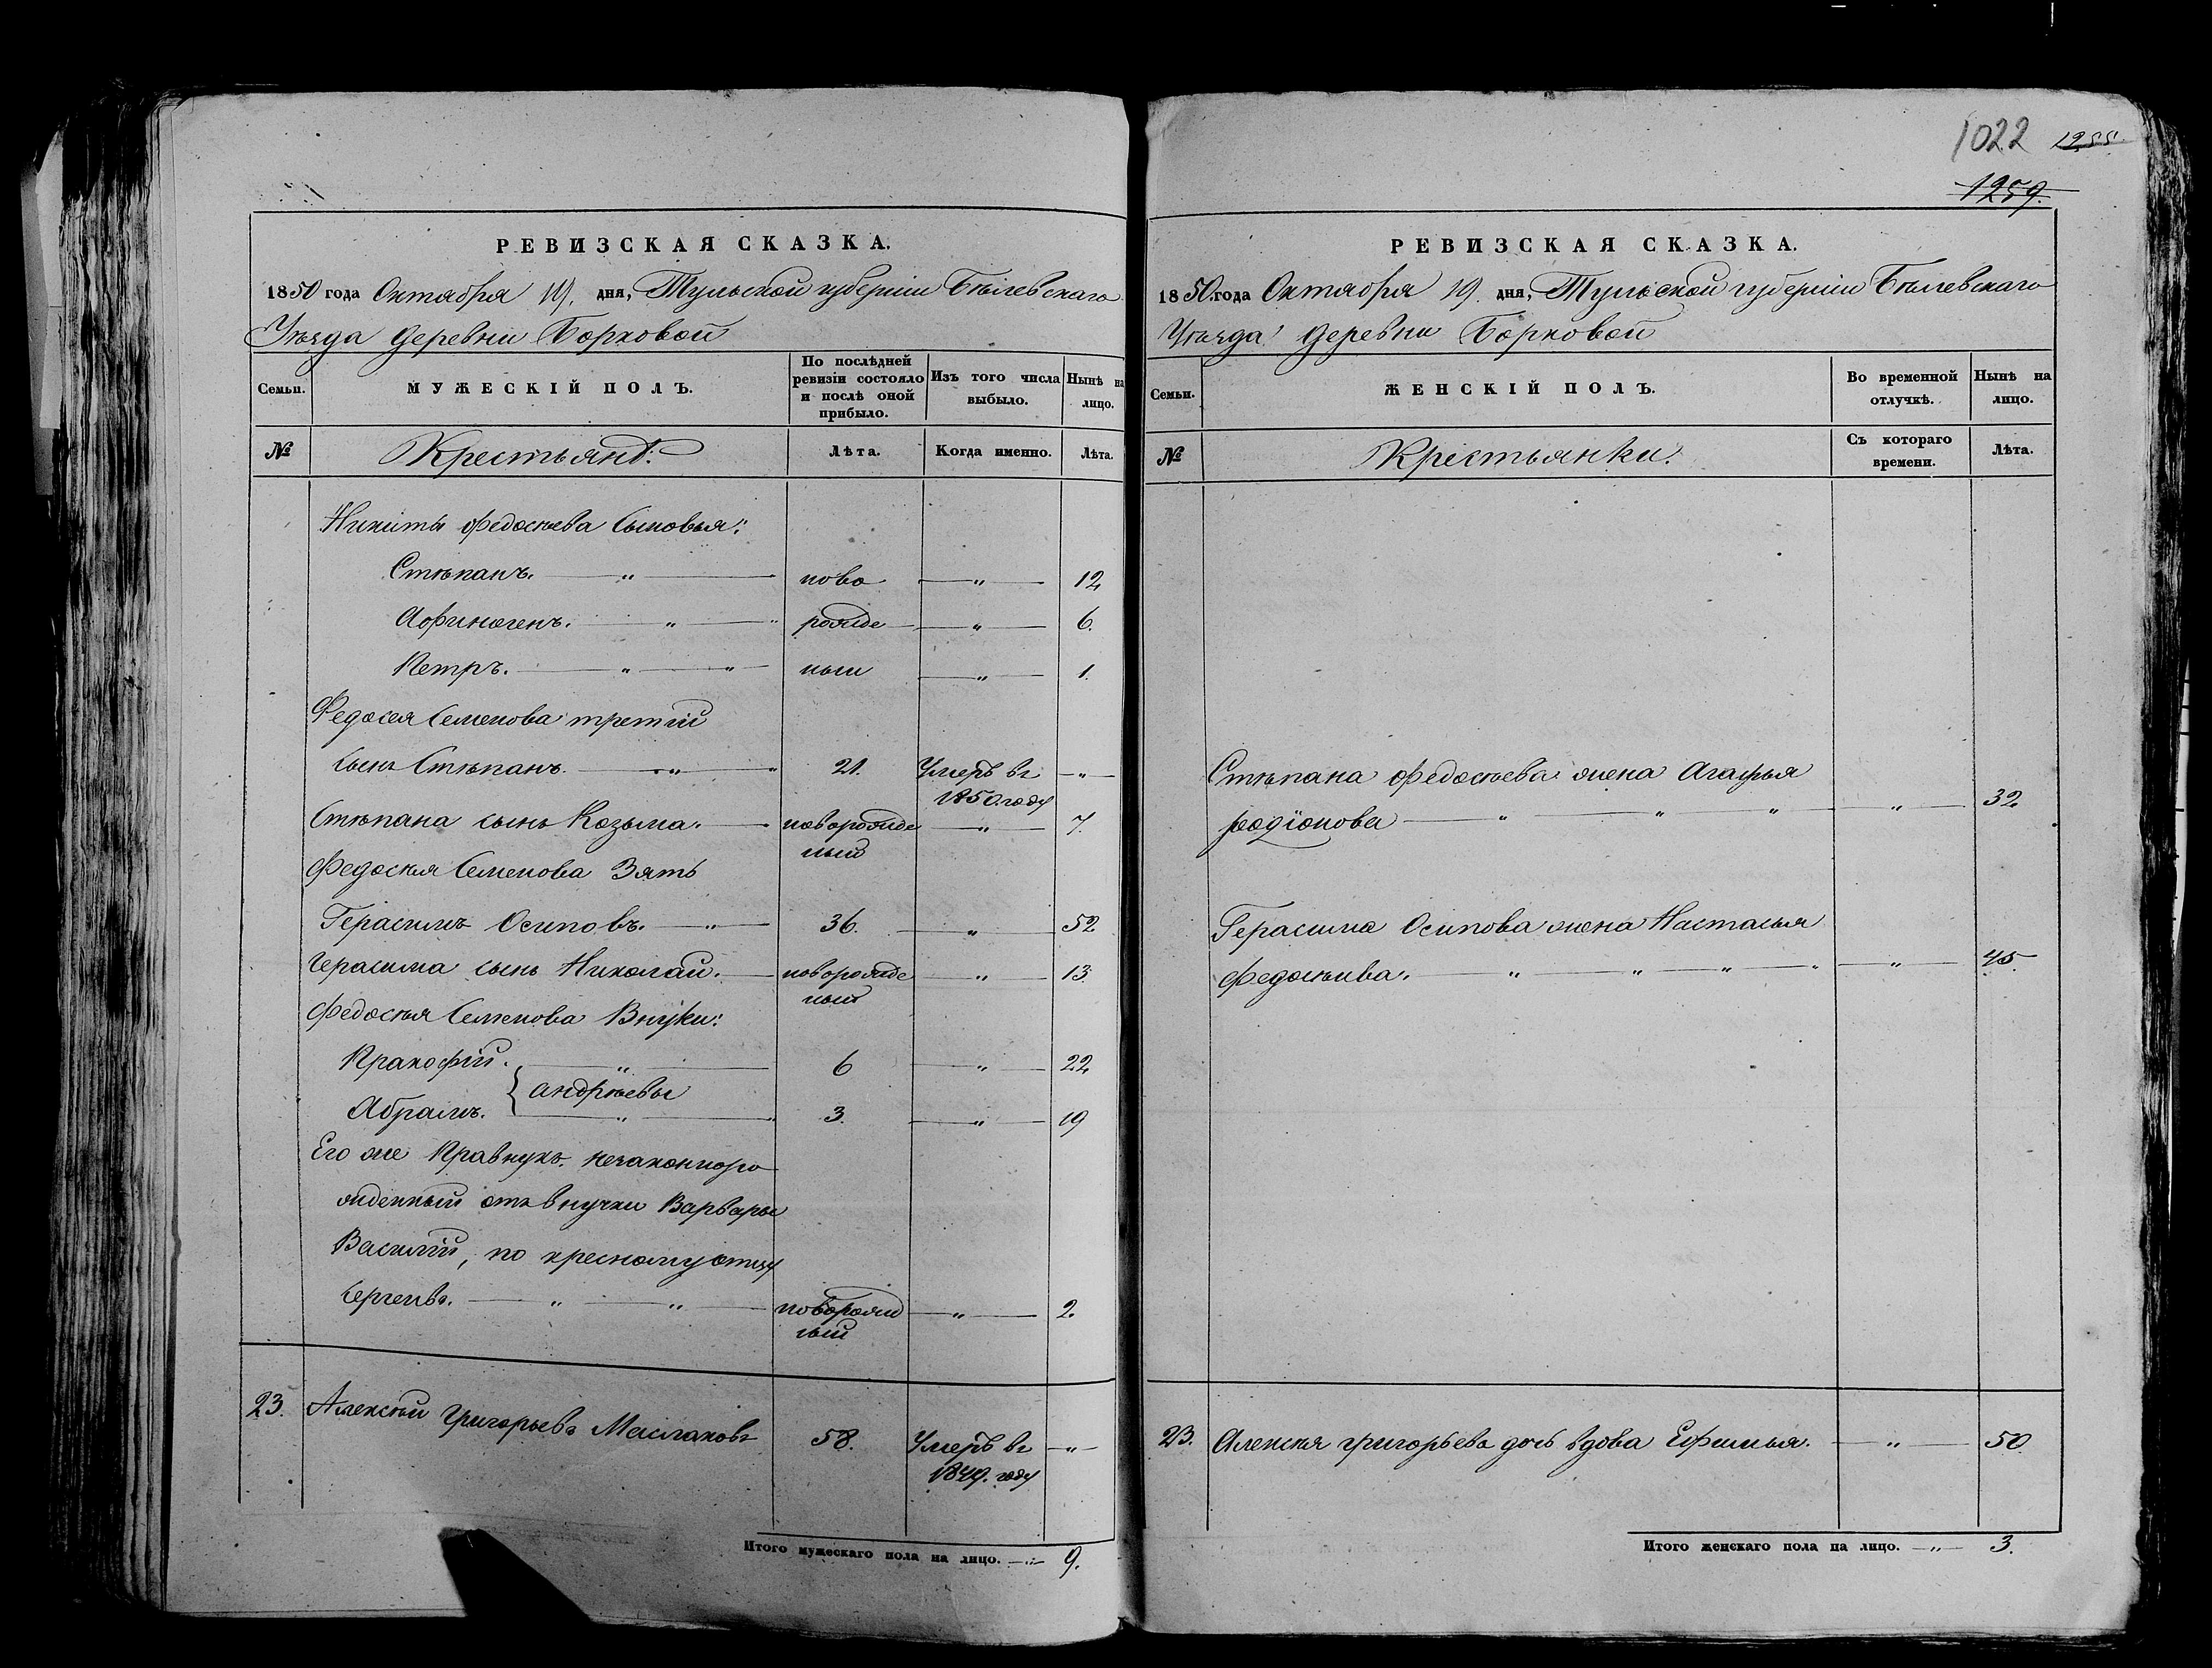 1022 1255.
1259.
РЕВИЗСКАЯ СКАЗКА.
1850 года Октября 19. дня, Тульской губерніи Бѣлевскаго
Уѣзда деревни Борковой
Семьи.
МУЖЕСКІЙ ПОЛЪ.
По послѣдней ревизіи состояло и послѣ оной прибыло.
Изъ того числа выбыло.
Нынѣ на лицо.
№
Крестьянѣ.
Лѣта.
Когда именно.
Лѣта.
Никиты Федосѣева Сыновья:
Стѣпанъ. — „ — ново — „ — 12
Афиногенъ. — „ — рожде — „ — 6.
Петръ. — „ — „ ныи — „ — 1.
Федосея Семенова третій
сынъ Стѣпанъ — „ — „ 21. Умеръ въ — „ —
1850. году
Стѣпана сынъ Козьма. — новорожде — „ — 7.
ный
Федосѣя Семенова Зять
Герасимъ Осиповъ. — „ — 36. — „ — 52
Герасима сынъ Николай. — новорожде — „ — 13.
ный
Федосѣя Семенова Внуки:
Пракофій. — „ — 6 — „ — 22
{ андрѣевы
Абрамъ. — „ — 3. — „ — 19
Его же Правнукъ. незаконноро
жденный отъ внучки Варвары
Василій, по кресному отцу
Сергеивъ. — „ — „ — новорожд — „ — 2.
ный
23. Алексѣй Григорьевъ Маслаковъ 58. Умеръ въ — „ —
1849. году
Итого мужескаго пола на лицо. — „ — 9.
РЕВИЗСКАЯ СКАЗКА.
1850. года Октября 19. дня, Тульской губерніи Бѣлевскаго
Уѣзда деревни Борковой
Семьи.
ЖЕНСКІЙ ПОЛЪ.
Во временной отлучкѣ.
Нынѣ на лицо.
№
Крестьянки.
Съ котораго времени.
Лѣта.
Стѣпана Федосѣева жена Агафья
родіонова — „ — „ — „ — „ — 32.
Герасима Осипова жена Настасья
Федосѣива. — „ — „ — „ — „ — „ — 45.
23. Алексѣя григорьева дочь вдова Ефимья. — „ — 50.
Итого женскаго пола на лицо. — „ — 3.